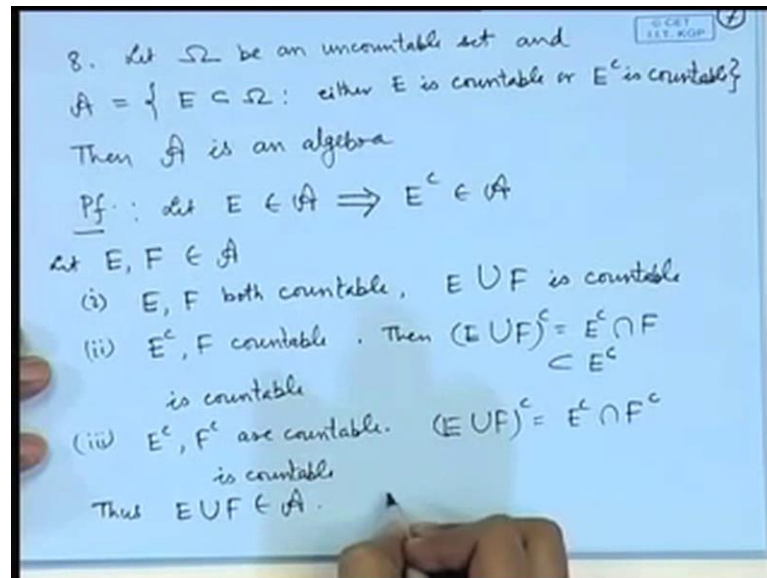 © CET
I.I.T. KGP
7
8. Let Ω be an uncountable set and
𝒜 = { E ⊂ Ω : either E is countable or E^c is countable}
Then 𝒜 is an algebra
Pf. : Let E ∈ 𝒜 ⟹ E^c ∈ 𝒜
Let E, F ∈ 𝒜
(i) E, F both countable, E ∪ F is countable
(ii) E^c, F countable. Then (E ∪ F)^c = E^c ∩ F
⊂ E^c
is countable
(iii) E^c, F^c are countable. (E ∪ F)^c = E^c ∩ F^c
is countable
Thus E ∪ F ∈ 𝒜.